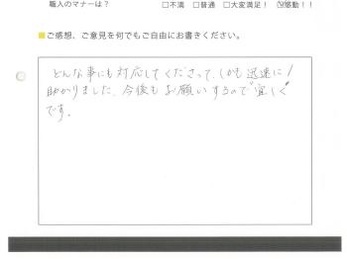 職人のマナーは？ □不満 □普通 □大変満足！ ☑感動！！
■ご感想、ご意見を何でもご自由にお書きください。
どんな事にも対応してくださって、しかも迅速に！
助かりました。今後もお願いするので"宜しく"
です。